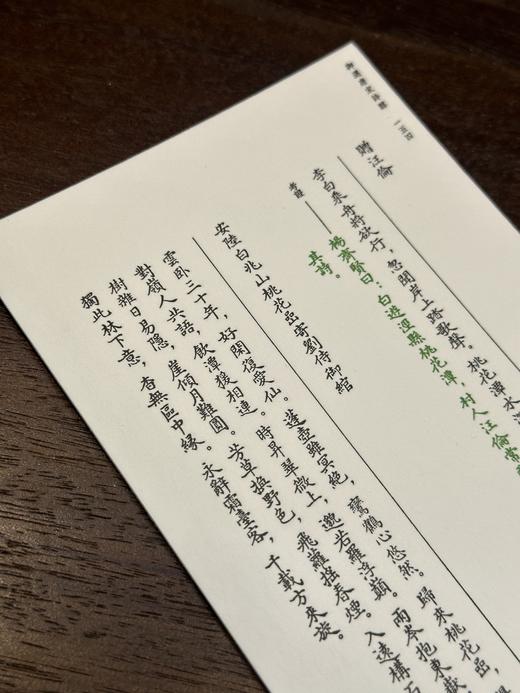 御選唐宋詩醇 一五四
贈汪倫
李白乘舟將欲行,忽聞岸上踏歌聲。桃花潭水
楊齊賢曰:白遊涇縣桃花潭,村人汪倫常
其詩。
安陸白兆山桃花嵒寄劉侍御綰
雲臥三十年,好閒復愛仙。蓬壺雖冥絕,鸞鶴心悠然。歸來桃花嵒,
對嶺人共語,飲潭猨相連。時昇翠微上,邈若羅浮巔。兩岑抱東
樹雜日易隱,崖傾月難圓。芳草換野色,飛蘿搖春煙。入遠構石
獨此林下意,杳無區中緣。永辭霜臺客,千載方來旋。